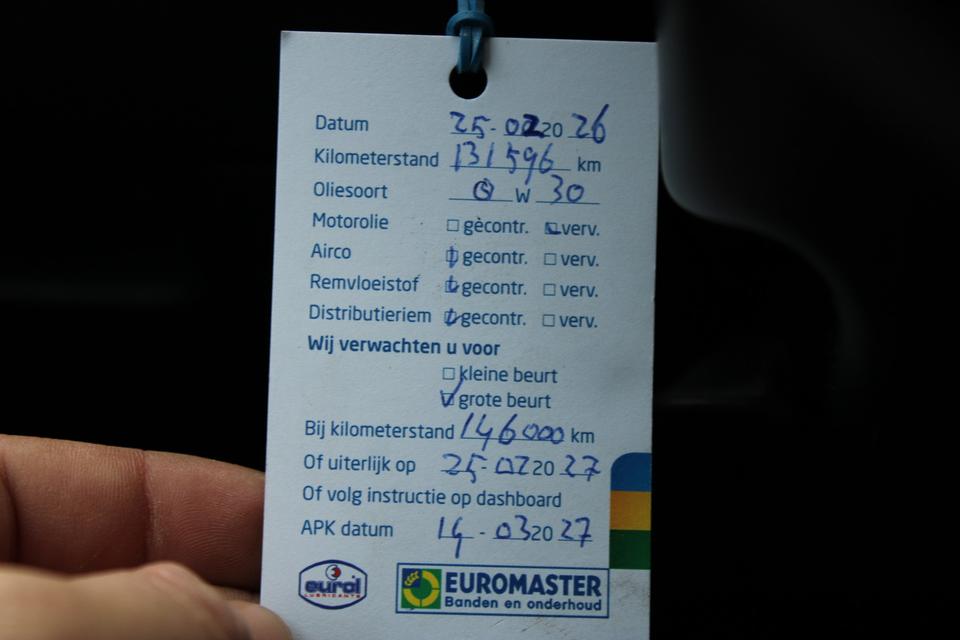 Datum 25-02 20 26
Kilometerstand 131596 km
Oliesoort 0 W 30
Motorolie gecontr. verv.
Airco gecontr. verv.
Remvloeistof gecontr. verv.
Distributieriem gecontr. verv.
Wij verwachten u voor
kleine beurt
grote beurt
Bij kilometerstand 146000 km
Of uiterlijk op 25-02 20 27
Of volg instructie op dashboard
APK datum 14-03 20 27
eurol
LUBRICANTS
EUROMASTER
Banden en onderhoud